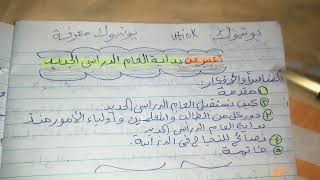 يوتيوك utiok يوتيوك معرفة
تعبير عن بداية العام الدراسي الجديد
العناصر والأفكار:
١ مقدمة
٢ كيف نستقبل العام الدراسي الجديد
٣ دور كل من الطالب والمعلمين وأولياء الأمور منذ
بداية العام الدراسي الجديد
٤ نصائح للنجاح في الدراسة
٥ خاتمة